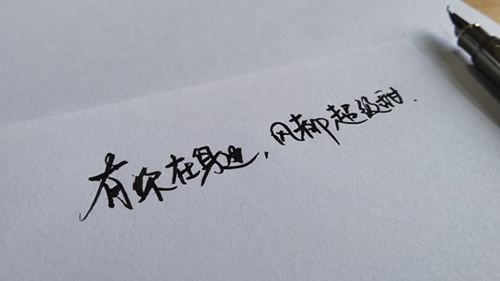 有你在身边，风都超级甜.